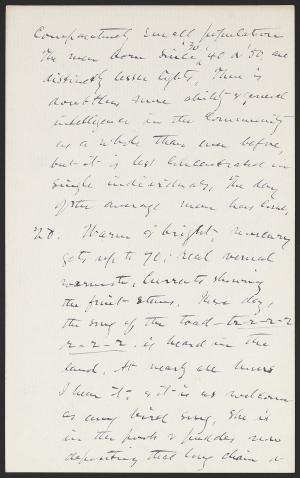 Comparatively small population
The men born since '30, '40 & '50, are
distinctly lesser lights. There is
doubtless more ability & general
intelligence in the Community
as a whole than ever before,
but it is less concentrated in
single individuals. The day
of the average man has come.
20. Warm & bright, mercury
gets up to 70; real vernal
warmth, currants showing
the fruit stems. These days
the song of the toad — tr-r-r-r
r-r-r, is heard in the
land. At nearly all hours
I hear it, & it is as welcome
as any bird song. She is
in the pools & puddles now
depositing that long chain or